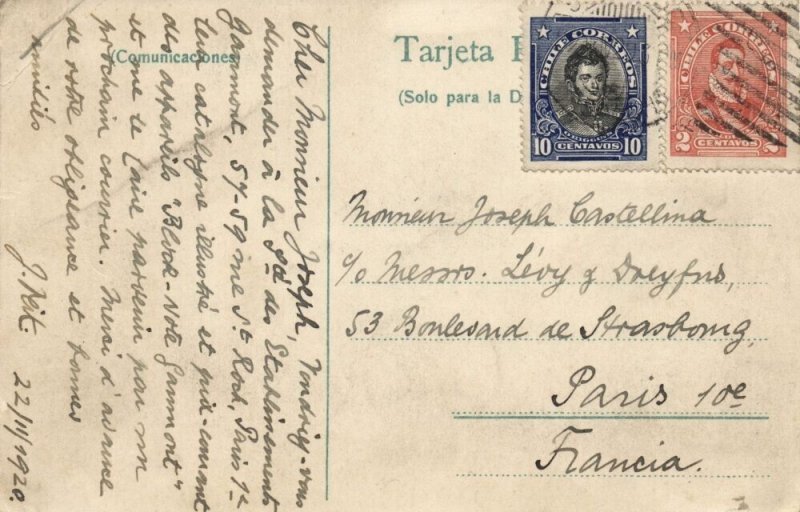 (Comunicaciones)
Cher Monsieur Joseph, Voudriez-vous
demander à la Sté des Etablissements
Gaumont, 57-59 rue St. Roch, Paris 1er
leur catalogue illustré et prix-courant
des appareils "Block-Note Gaumont"
et me le faire parvenir par un
prochain courrier. Merci d'avance
de votre obligeance et bonnes
amitiés
22/11/1920.
Tarjeta
(Solo para la D
CHILE CORREOS
10 CENTAVOS
CHILE CORREOS
2 CENTAVOS 2
Monsieur Joseph Castellina
c/o Messrs. Lévy & Dreyfus,
53 Boulevard de Strasbourg,
Paris 10e
Francia.